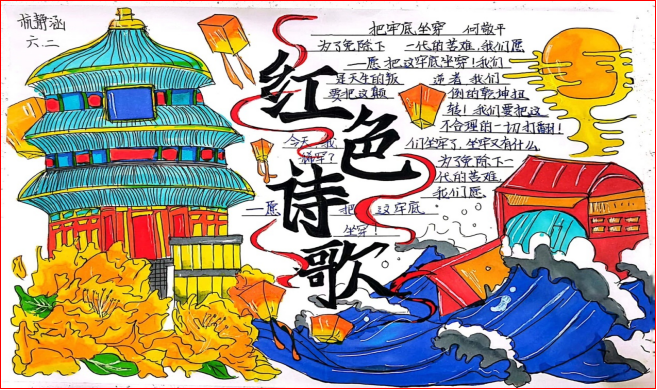 六.二
红色诗歌
把牢底坐穿 何敬平
为了免除下一代的苦难,我们愿
一愿把这牢底坐穿!我们
是天生的叛逆者 我们
要把这颠倒的乾坤扭
转!我们要把这
不合理的一切打翻!
今天,我们坐牢了,坐牢又有什么
稀罕?
为了免除下一
代的苦难,
我们愿
一愿把这牢底
坐穿!